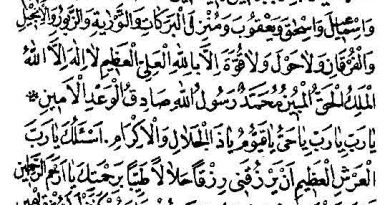 وَاِسْمٰعِيْلَ وَاِسْحٰقَ وَيَعْقُوْبَ وَمُنْزِلَ الْبَرَكَاتِ وَالتَّوْرٰيةِ وَالزَّبُوْرِ وَالْاِنْجِيْلِ
وَالْفُرْقَانِ وَلَاحَوْلَ وَلَاقُوَّةَ اِلَّا بِاللهِ الْعَلِيِّ الْعَظِيْمِ لَا اِلٰهَ اِلَّا اللهُ
الْمَلِكُ الْحَقُّ الْمُبِيْنُ مُحَمَّدٌ رَسُوْلُ اللهِ صَادِقُ الْوَعْدِ الْاَمِيْنِ *
يَارَبِّ يَارَبِّ يَاحَيُّ يَاقَيُّوْمُ يَاذَ الْجَلَالِ وَالْاِكْرَامِ. اَسْئَلُكَ يَارَبَّ
الْعَرْشِ الْعَظِيْمِ اَنْ يَرْزُقَنِيْ رِزْقًا حَلَالًا طَيِّبًا بِرَحْمَتِكَ يَا اَرْحَمَ الرَّاحِمِيْنَ